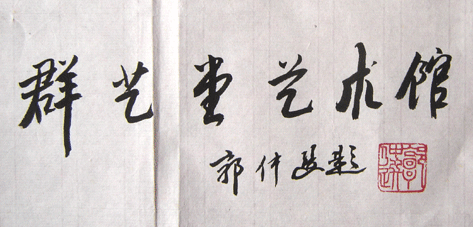 群艺堂艺术馆
郭仲选题